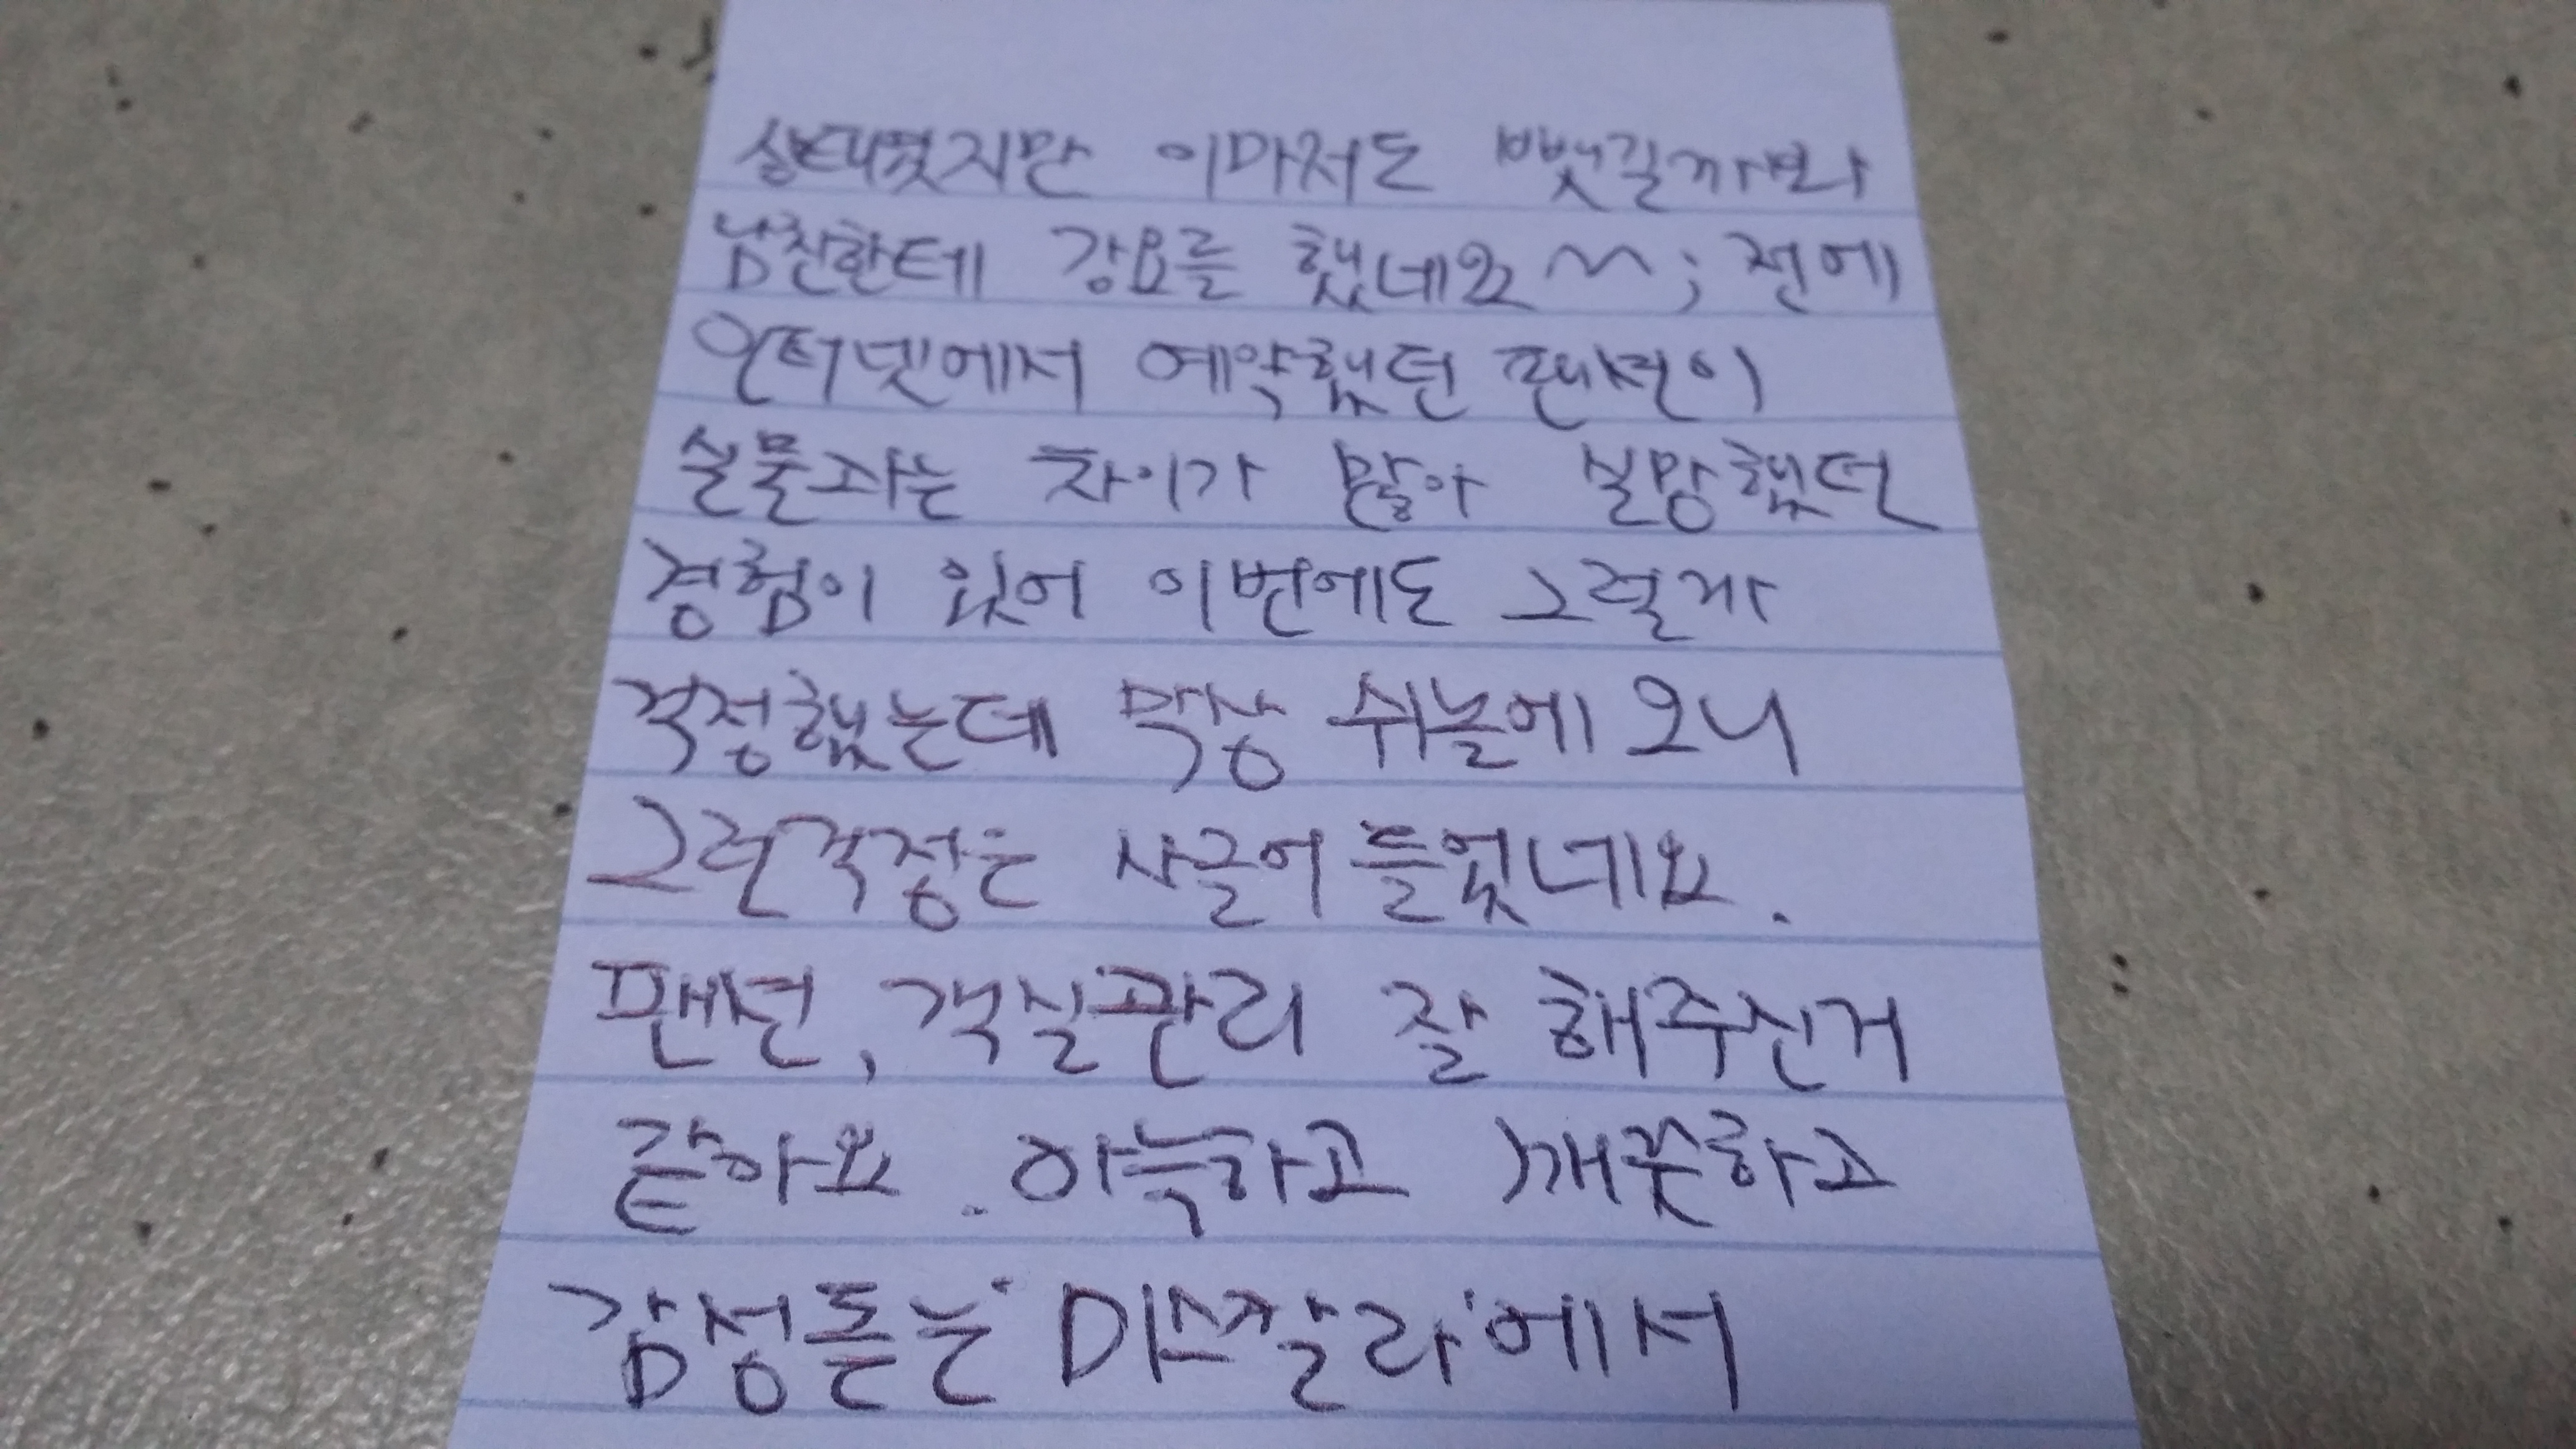 상태였지만 이마저도 뺏길까봐
남친한테 강요를 했네요 ^^; 전에
인터넷에서 예약했던 팬션이
실물과는 차이가 많아 실망했던
경험이 있어 이번에도 그럴까
걱정했는데 막상 쉬눌에 오니
그런걱정은 사글어 들었네요.
팬션, 객실관리 잘 해주신거
같아요. 아늑하고 깨끗하고
감성돋는 '미스잘라'에서